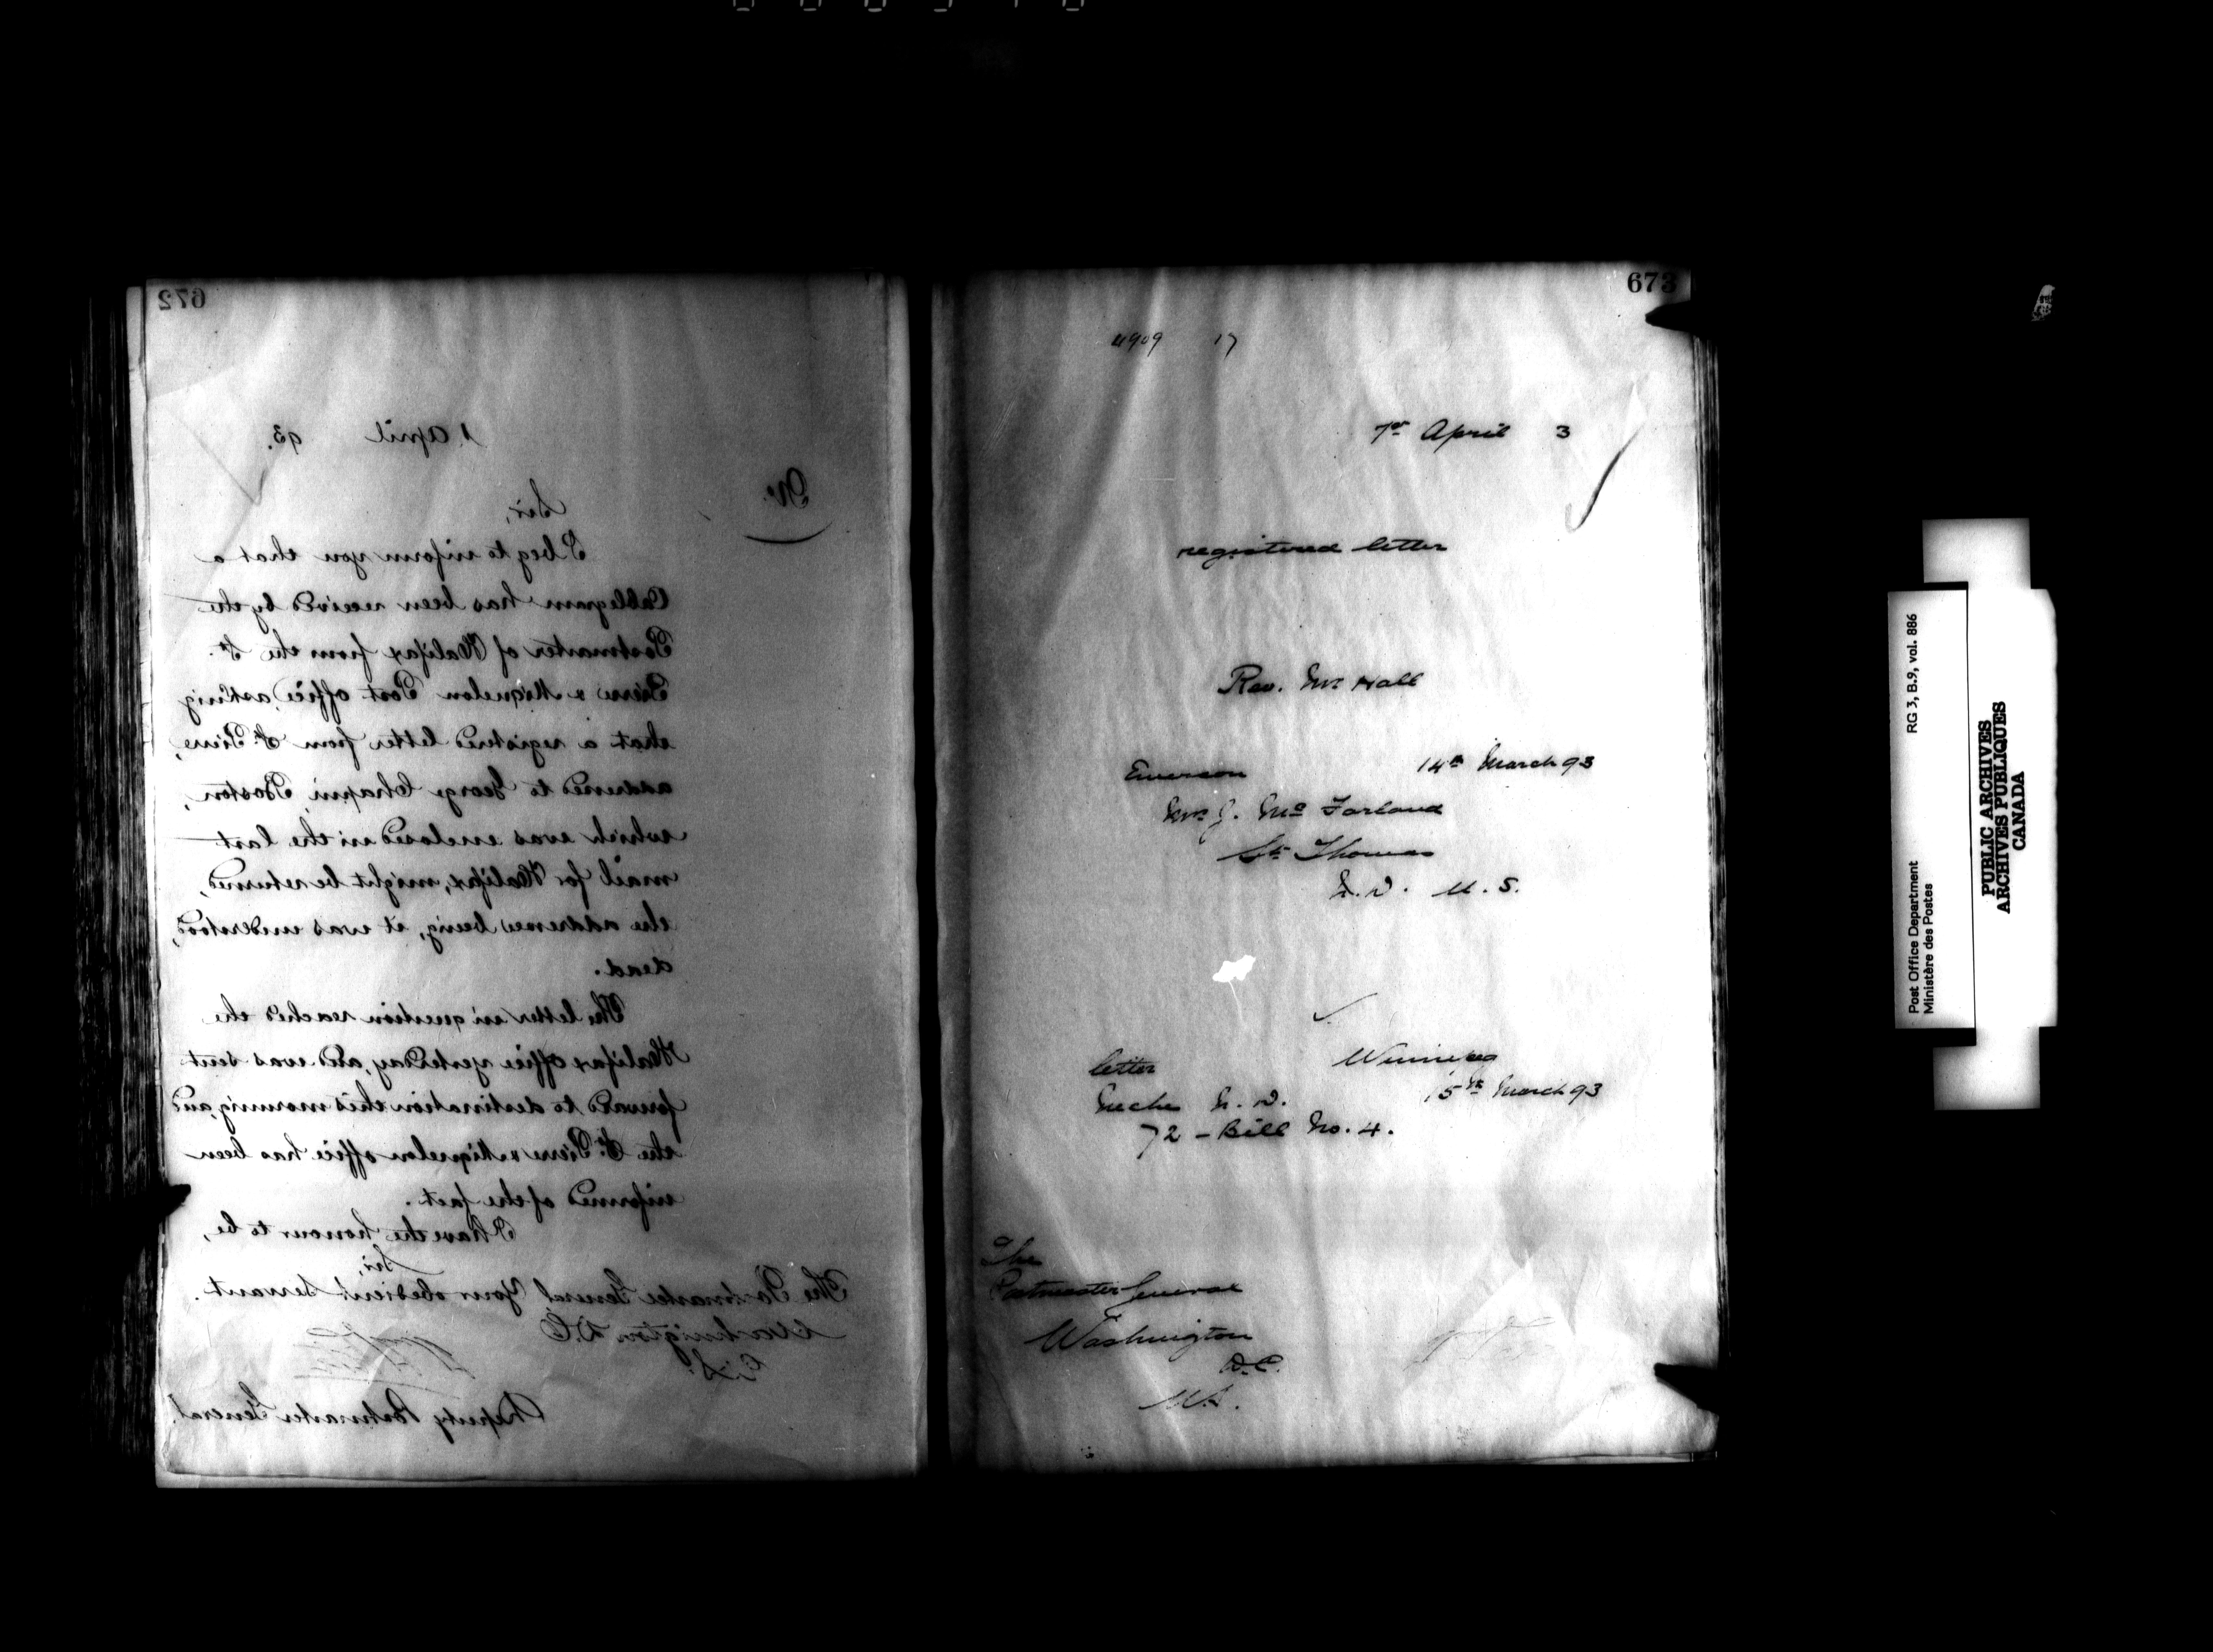 672
1 April 93.
No.
Sir,
I beg to inform you that a
Cablegram has been received by the
Postmaster of Halifax from the St.
Pierre & Miquelon Post office, asking
that a registered letter from St. Pierre,
addressed to George Chapin, Boston,
which was enclosed in the last
mail for Halifax, might be returned,
the addressee being, it was understood,
dead.
The letter in question reached the
Halifax office yesterday, and was sent
forward to destination this morning, and
the St. Pierre & Miquelon office has been
informed of the fact.
I have the honour to be,
Sir,
Your obedient Servant.
The Postmaster General
Washington D.C.
U.S.
Deputy Postmaster General.
673
4909 17
7th April 3
registered letter
Rev. Mr Hall
Emerson 14th March 93
Mrs J. Mc Farland
St. Thomas
N.D. U.S.
letter Winnipeg
Neche N.D. 15th March 93
72 - Bill No. 4.
The
Postmaster General
Washington
D.C.
U.S.
Post Office Department
Ministère des Postes
RG 3, B.9, vol. 886
PUBLIC ARCHIVES
ARCHIVES PUBLIQUES
CANADA